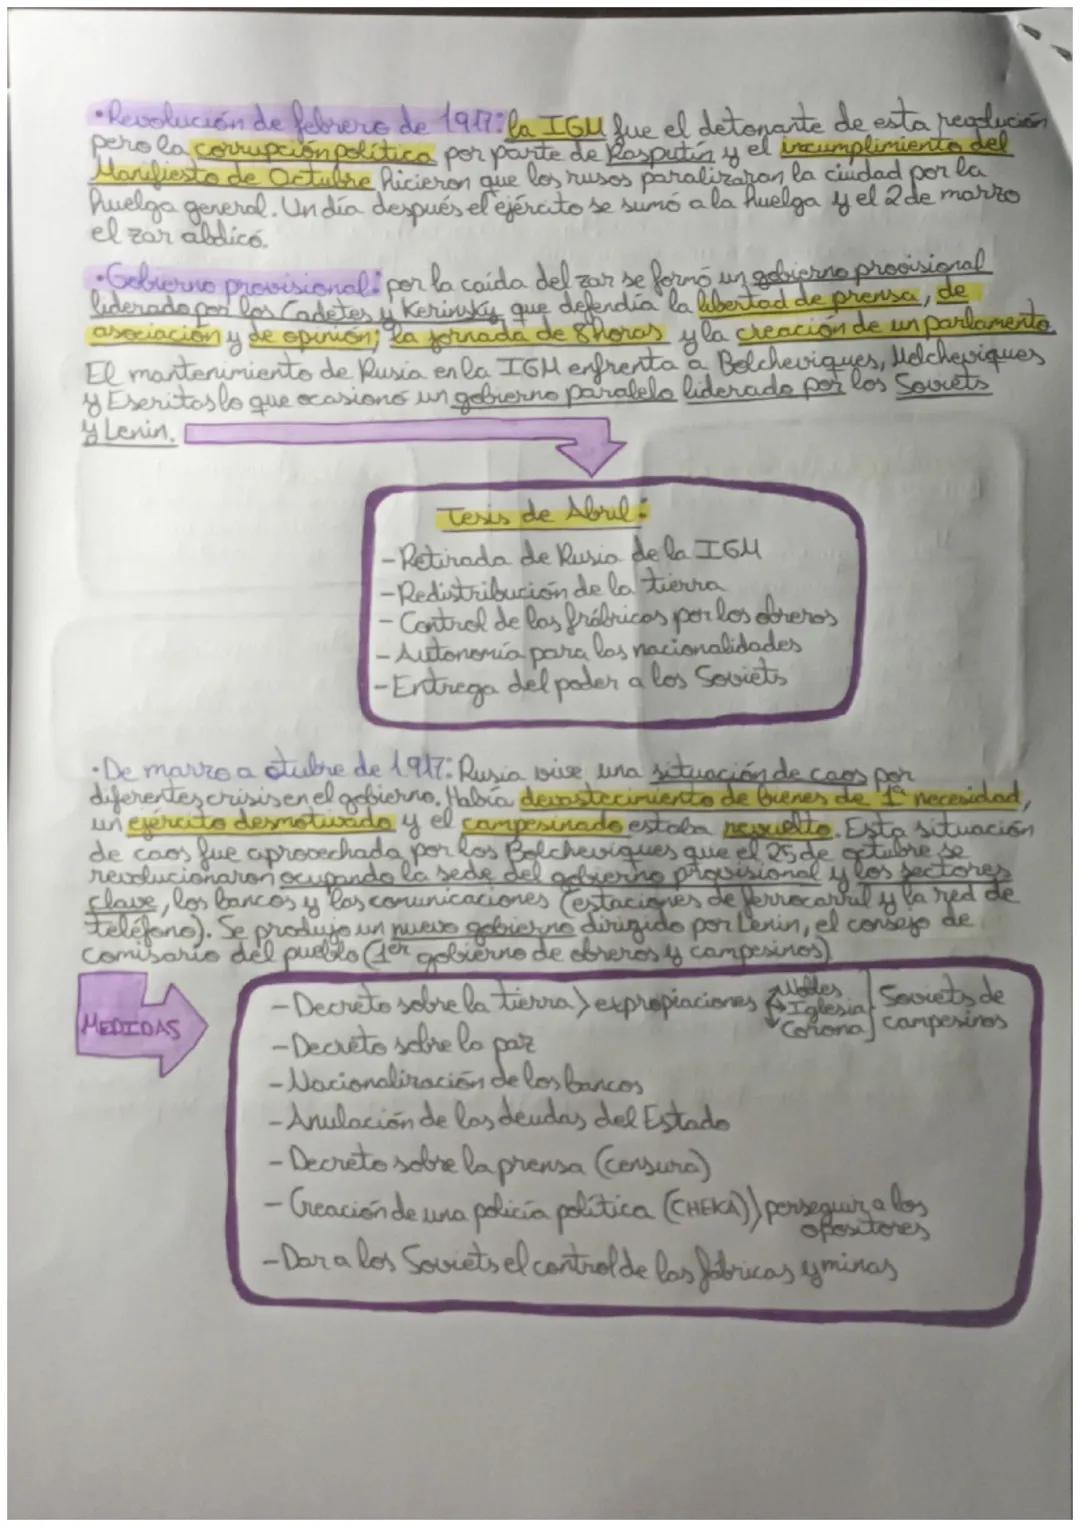 ·Revolución de febrero de 1917: la IGM fue el detonante de esta revolución
pero la corrupción política por parte de Rasputín y el incumplimiento del
Manifiesto de Octubre hicieron que los rusos paralizaran la ciudad por la
huelga general. Un día después el ejército se sumó a la huelga y el 2 de marzo
el zar abdicó.
·Gobierno provisional: por la caída del zar se formó un gobierno provisional
liderado por los Cadetes y Kerinsky que defendía la libertad de prensa, de
asociación y de opinión; la jornada de 8 horas y la creación de un parlamento.
El mantenimiento de Rusia en la IGM enfrenta a Bolcheviques, Melcheviques
y Eseritas lo que ocasionó un gobierno paralelo liderado por los Soviets
y Lenin.
Tesis de Abril:
-Retirada de Rusia de la IGM
-Redistribución de la tierra
-Control de las frábricas por los obreros
-Autonomía para las nacionalidades
-Entrega del poder a los Soviets
·De marzo a otubre de 1917: Rusia vive una situación de caos por
diferentes crisis en el gobierno. Había devastecimiento de bienes de 1ª necesidad,
un ejército desmotivado y el campesinado estaba revuelto. Esta situación
de caos fue aprovechada por los Bolcheviques que el 25 de octubre se
revolucionaron ocupando la sede del gobierno provisional y los sectores
clave, los bancos y las comunicaciones (estaciones de ferrocarril y la red de
teléfono). Se produjo un nuevo gobierno dirigido por Lenin, el consejo de
comisario del pueblo (1er gobierno de obreros y campesinos)
MEDIDAS
-Decreto sobre la tierra) expropiaciones Nobles Iglesia Corona Soviets de campesinos
-Decreto sobre la paz
-Nacionalización de los bancos
-Anulación de las deudas del Estado
-Decreto sobre la prensa (censura)
-Creación de una policía política (CHEKA)) perseguir a los
opositores
-Dar a los Soviets el control de las fábricas y minas